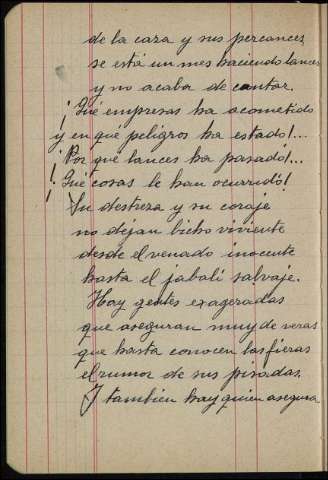 de la caza y sus percances,
se está un mes haciendo lances
y no acaba de contar.
¡Qué empresas ha acometido
y en qué peligros ha estado!...
¡Por qué lances ha pasado!...
¡Qué cosas le han ocurrido!
¡Su destreza y su coraje
no dejan bicho viviente
desde el venado inocente
hasta el jabalí salvaje.
Hay gentes exageradas
que aseguran muy de veras
que hasta conocen las fieras
el rumor de sus pisadas.
Y tambien hay quien asegura